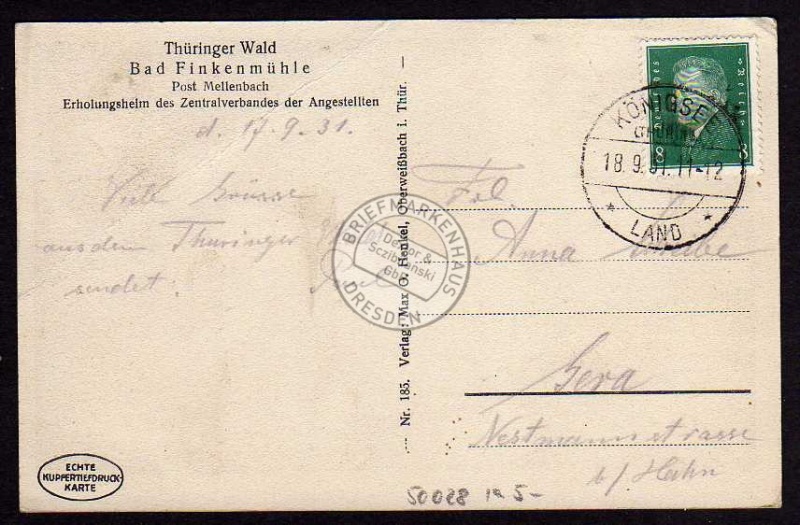 Thüringer Wald
Bad Finkenmühle
Post Mellenbach
Erholungsheim des Zentralverbandes der Angestellten
d. 17.9.31.
Viele Grüsse
aus dem Thüringer
sendet
ECHTE
KUPFERTIEFDRUCK-
KARTE
Nr. 185. Verlag: Max G. Henkel, Oberweißbach i. Thür.
BRIEFMARKENHAUS
DRESDEN
KÖNIGSEE
(THÜRINGEN)
18.9.31.11-12
* LAND *
Deutsches Reich
8 8
Frl.
Anna
Gera
b/ Hahn
50028 5-